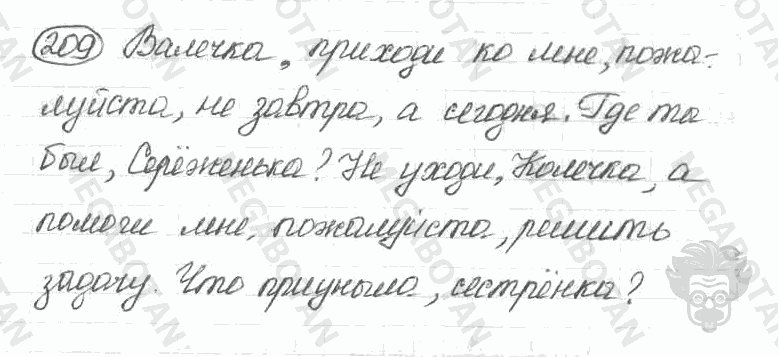 209 Валечка, приходи ко мне, пожа-
луйста, не завтра, а сегодня. Где ты
был, Серёженька? Не уходи, Колечка, а
помоги мне, пожалуйста, решить
задачу. Что приуныла, сестрёнка?
MEGABOTAN